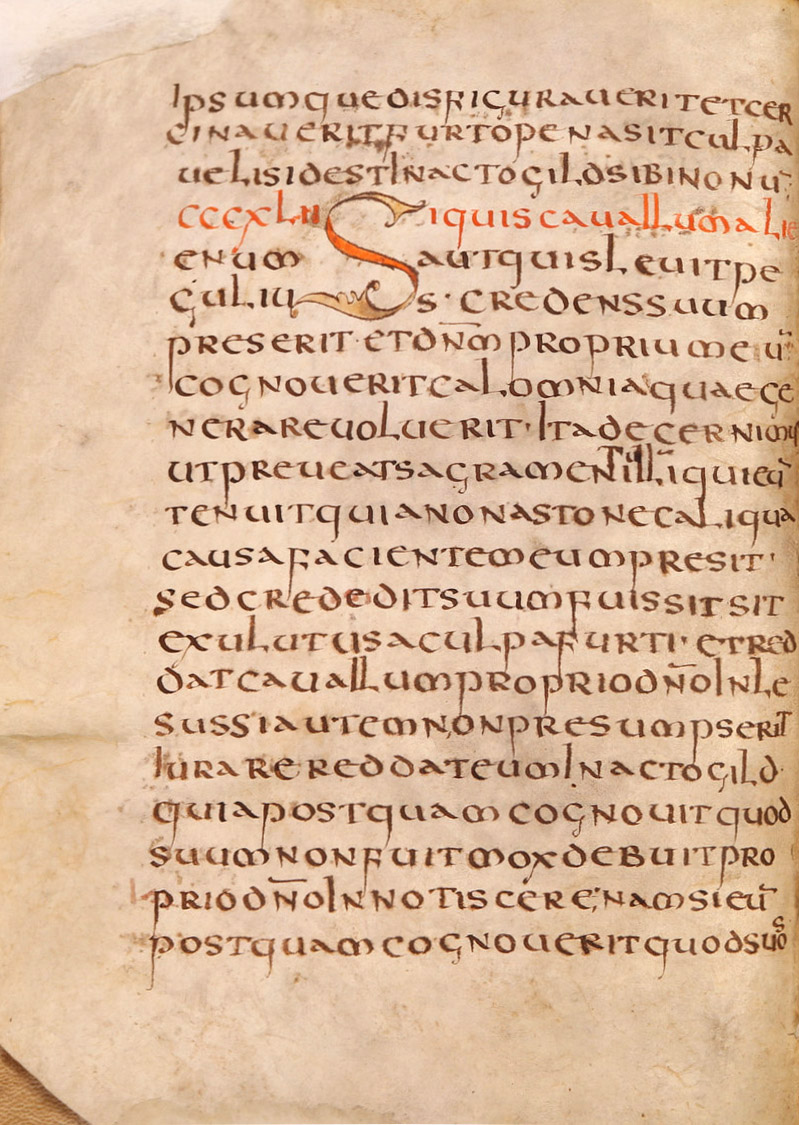 Ipsumque disfiguraverit et cer
cinaverit furtopenasit culpa
velis id est In actogild sibi nonū:
CCCXLII Si quis cavallum alie
enum aut quis levit pe
culius· credens suum
preserit· et dn̄m proprium eiū:
cognoverit calomnia quae ge
nerare voluerit· Ita decernimus
ut preveat sagramen̄ illi qui eū
tenuit quia non asto nec aliqua
causa facientem eum presit·
sed crededit suum fuissit sit
exulutus a culpa furti· et red
dat cavallum proprio dn̄o In le
sus si autem non presumpserit
Iurare reddat eum In actogild·
quia postquam cognovit quod
suum non fuit mox debuit pro
prio dn̄o Innotiscere; nam si eū
postquam cognoverit quod suūs